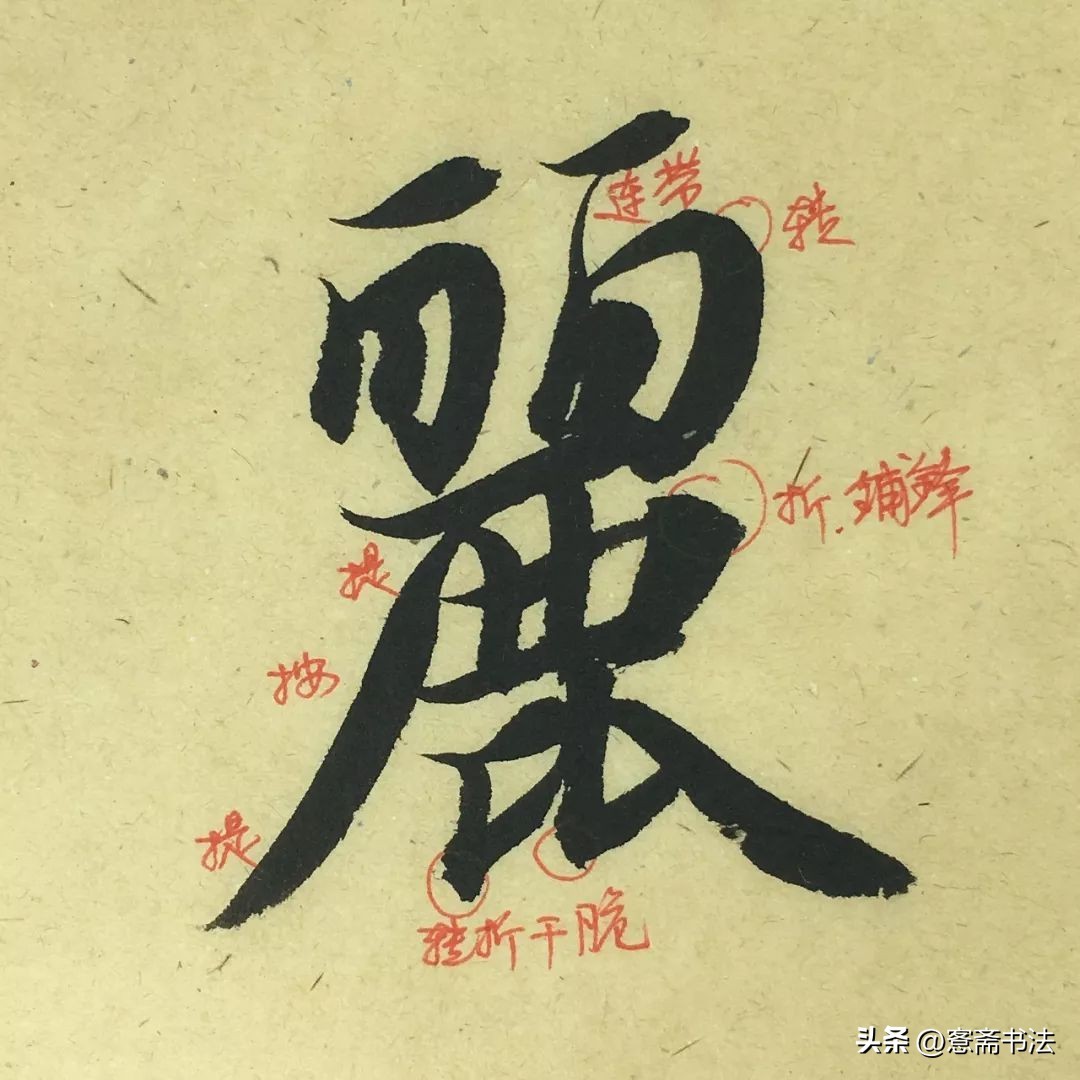 麗
连带
转
折.铺鋒
提
按
提
转折干脆
头条 @寋斋书法